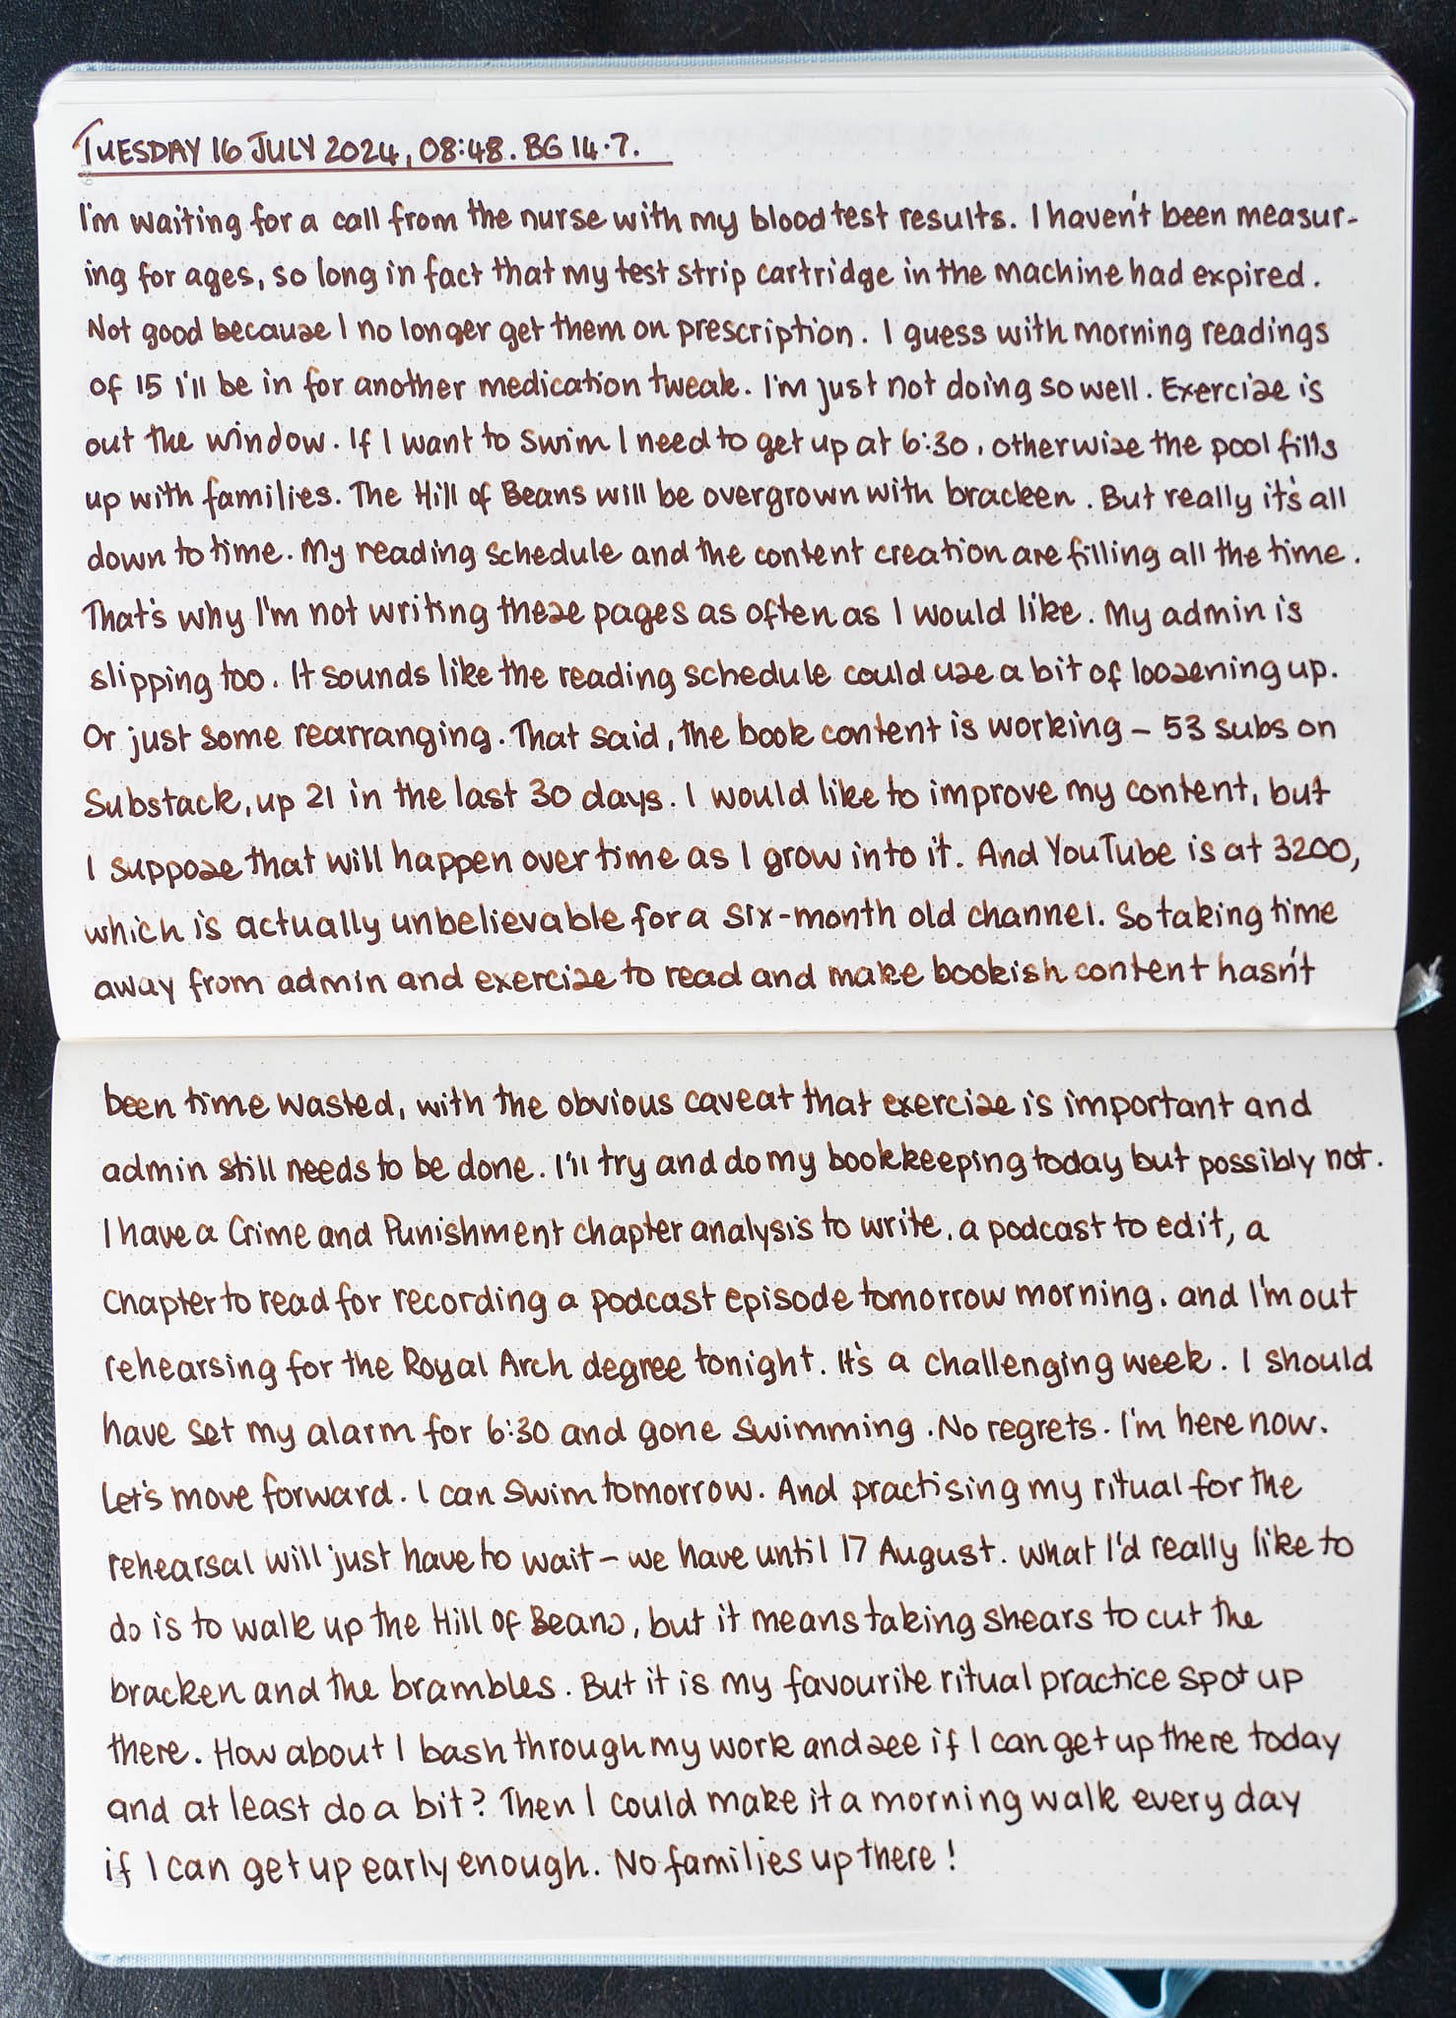 TUESDAY 16 JULY 2024, 08:48. BG 14.7.
I'm waiting for a call from the nurse with my blood test results. I haven't been measur-
ing for ages, so long in fact that my test strip cartridge in the machine had expired.
Not good because I no longer get them on prescription. I guess with morning readings
of 15 i'll be in for another medication tweak. I'm just not doing so well. Exercise is
out the window. If I want to swim I need to get up at 6:30, otherwise the pool fills
up with families. The Hill of Beans will be overgrown with bracken. But really it's all
down to time. My reading schedule and the content creation are filling all the time.
That's why I'm not writing these pages as often as I would like. My admin is
slipping too. It sounds like the reading schedule could use a bit of loosening up.
Or just some rearranging. That said, the book content is working – 53 subs on
Substack, up 21 in the last 30 days. I would like to improve my content, but
I suppose that will happen over time as I grow into it. And YouTube is at 3200,
which is actually unbelievable for a six-month old channel. So taking time
away from admin and exercise to read and make bookish content hasn't
been time wasted, with the obvious caveat that exercise is important and
admin still needs to be done. I'll try and do my bookkeeping today but possibly not.
I have a Crime and Punishment chapter analysis to write, a podcast to edit, a
chapter to read for recording a podcast episode tomorrow morning, and I'm out
rehearsing for the Royal Arch degree tonight. It's a challenging week. I should
have set my alarm for 6:30 and gone swimming. No regrets. I'm here now.
Let's move forward. I can swim tomorrow. And practising my ritual for the
rehearsal will just have to wait – we have until 17 August. What I'd really like to
do is to walk up the Hill of Beans, but it means taking shears to cut the
bracken and the brambles. But it is my favourite ritual practice spot up
there. How about I bash through my work and see if I can get up there today
and at least do a bit? Then I could make it a morning walk every day
if I can get up early enough. No families up there!